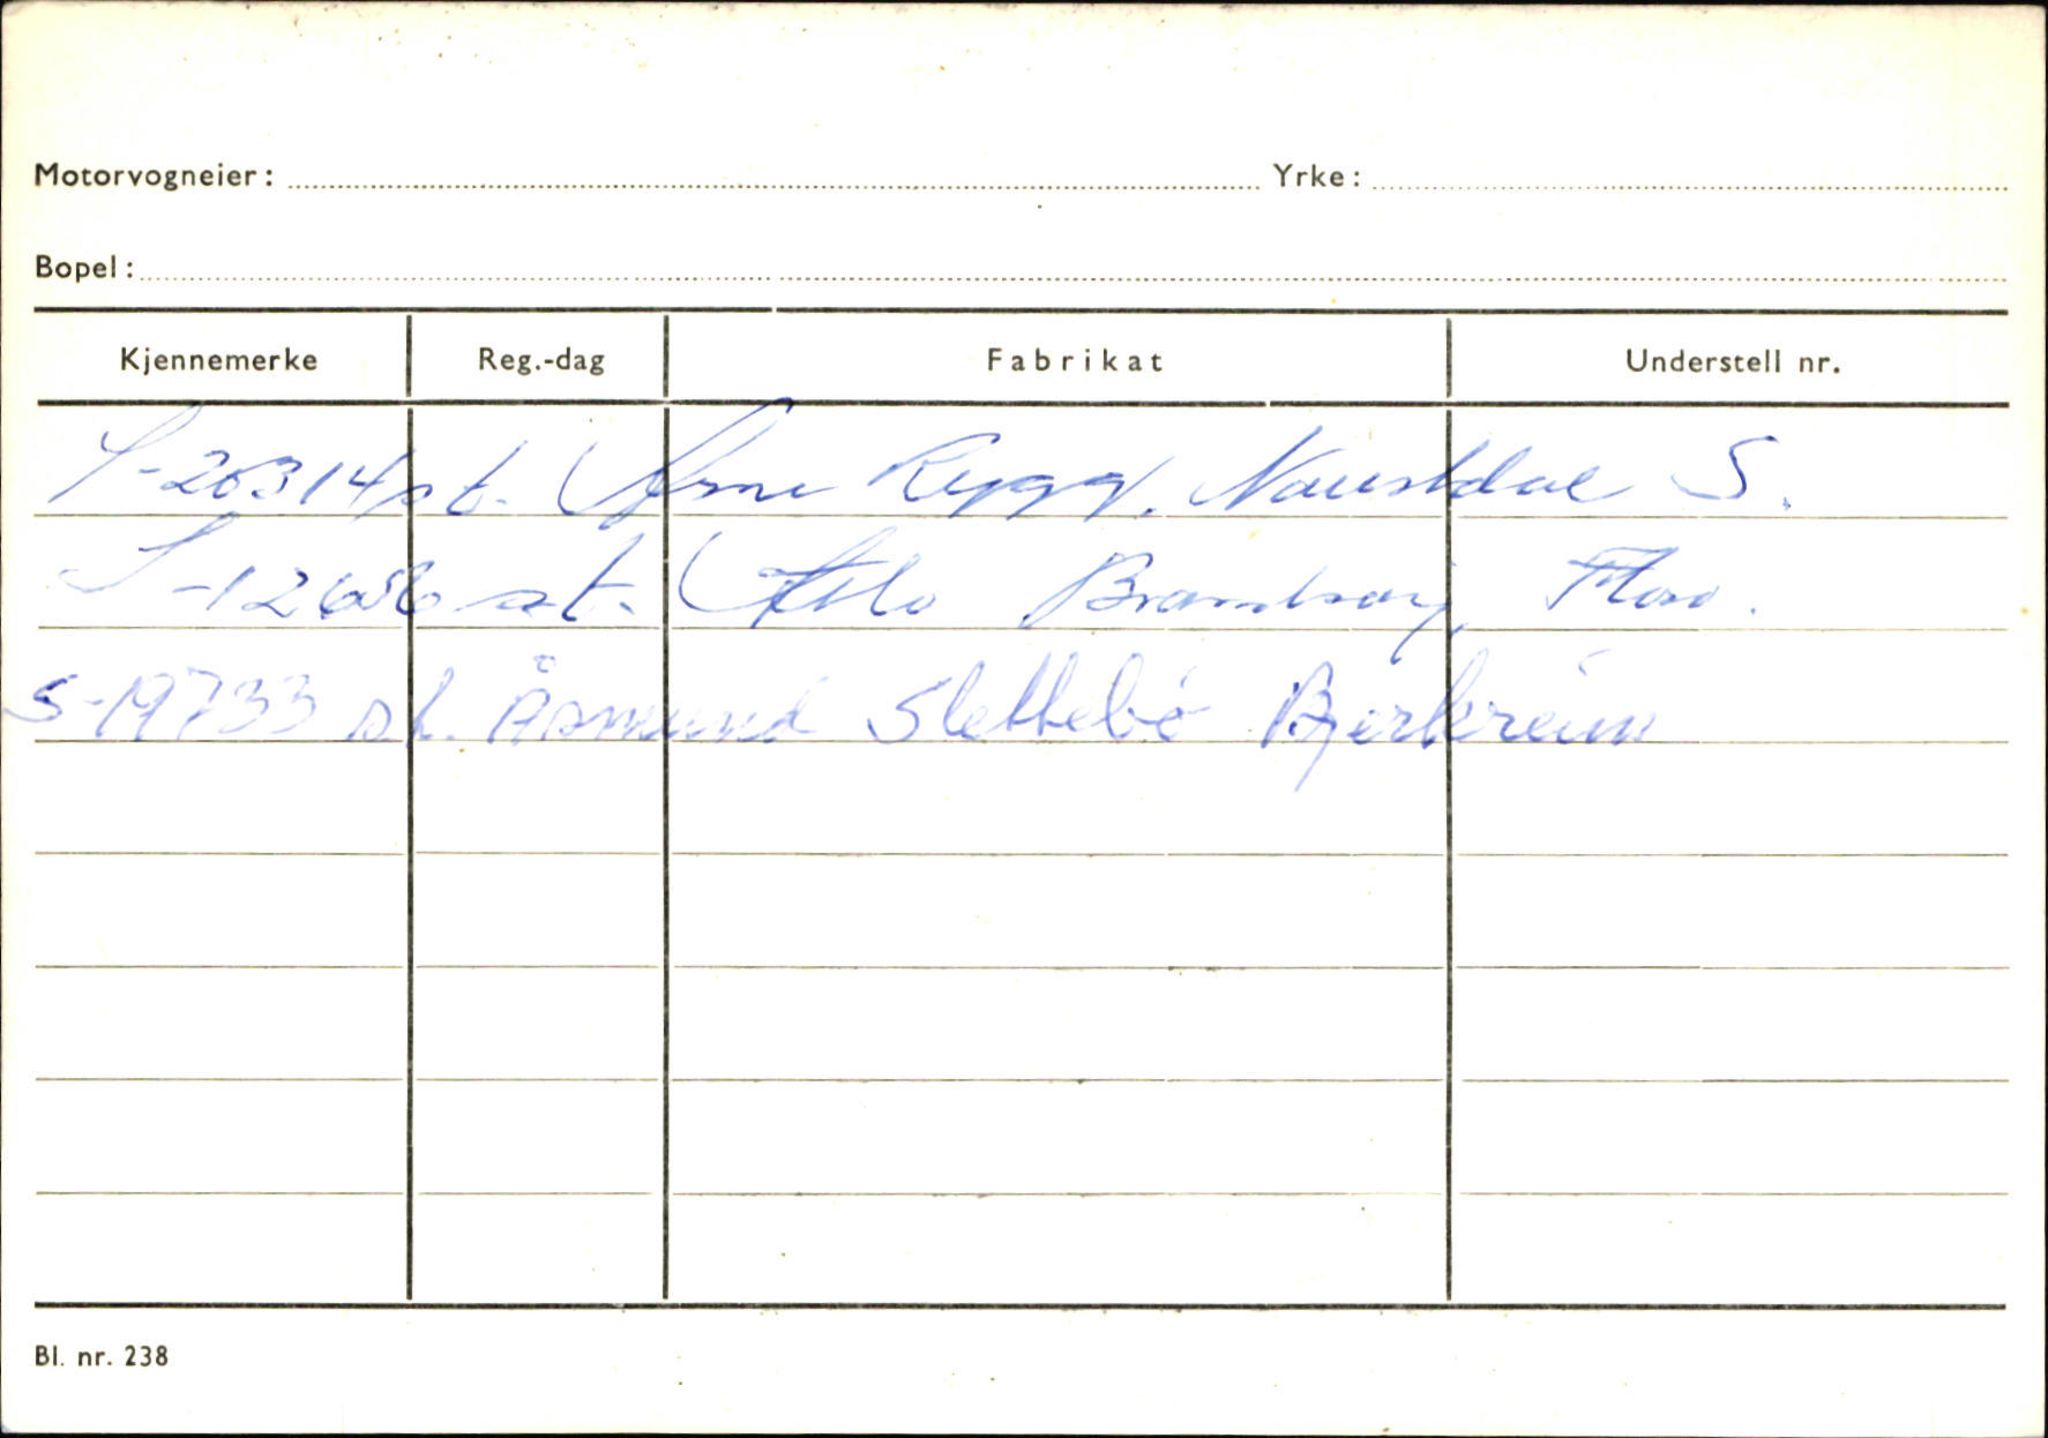 Motorvogneier: Yrke:
Bopel:
Kjennemerke Reg.-dag Fabrikat Understell nr.
S-26314 st. Arne Rygg, Naustdal S.
S-12656 st. Atle Flora.
S-19733 st. Åsmund Slettebö Bjerkreim
Bl. nr. 238